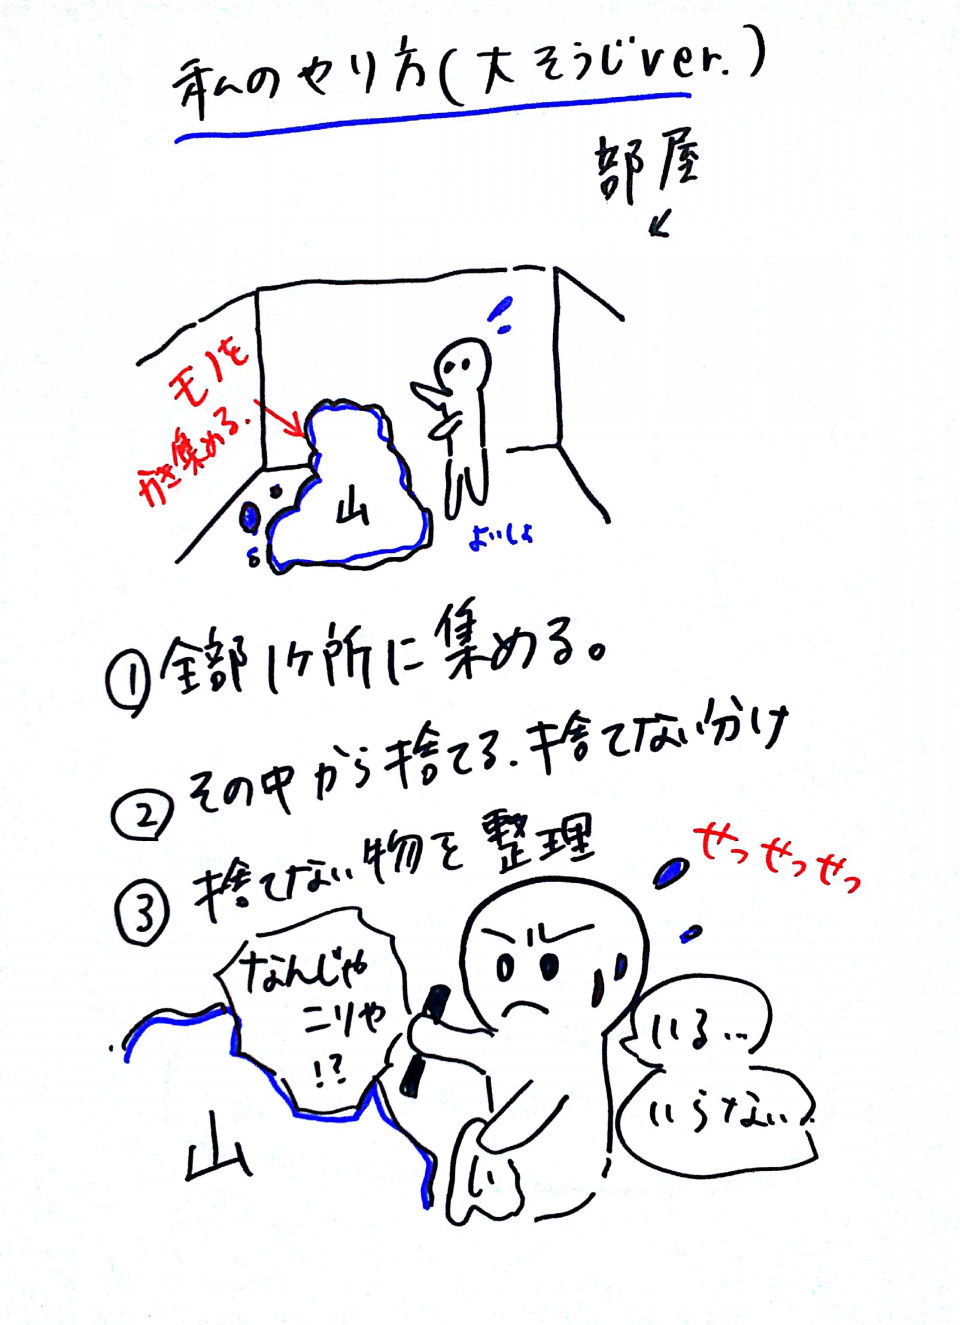 私のやり方(大そうじver.)
部屋
モノを
かき集める.
山
よいしょ
①全部1ヶ所に集める。
②その中から捨てる.捨てない分け
③捨てない物を整理
せっせっせっ
なんじゃ
こりゃ
!?
いる…
いらない..
山
い